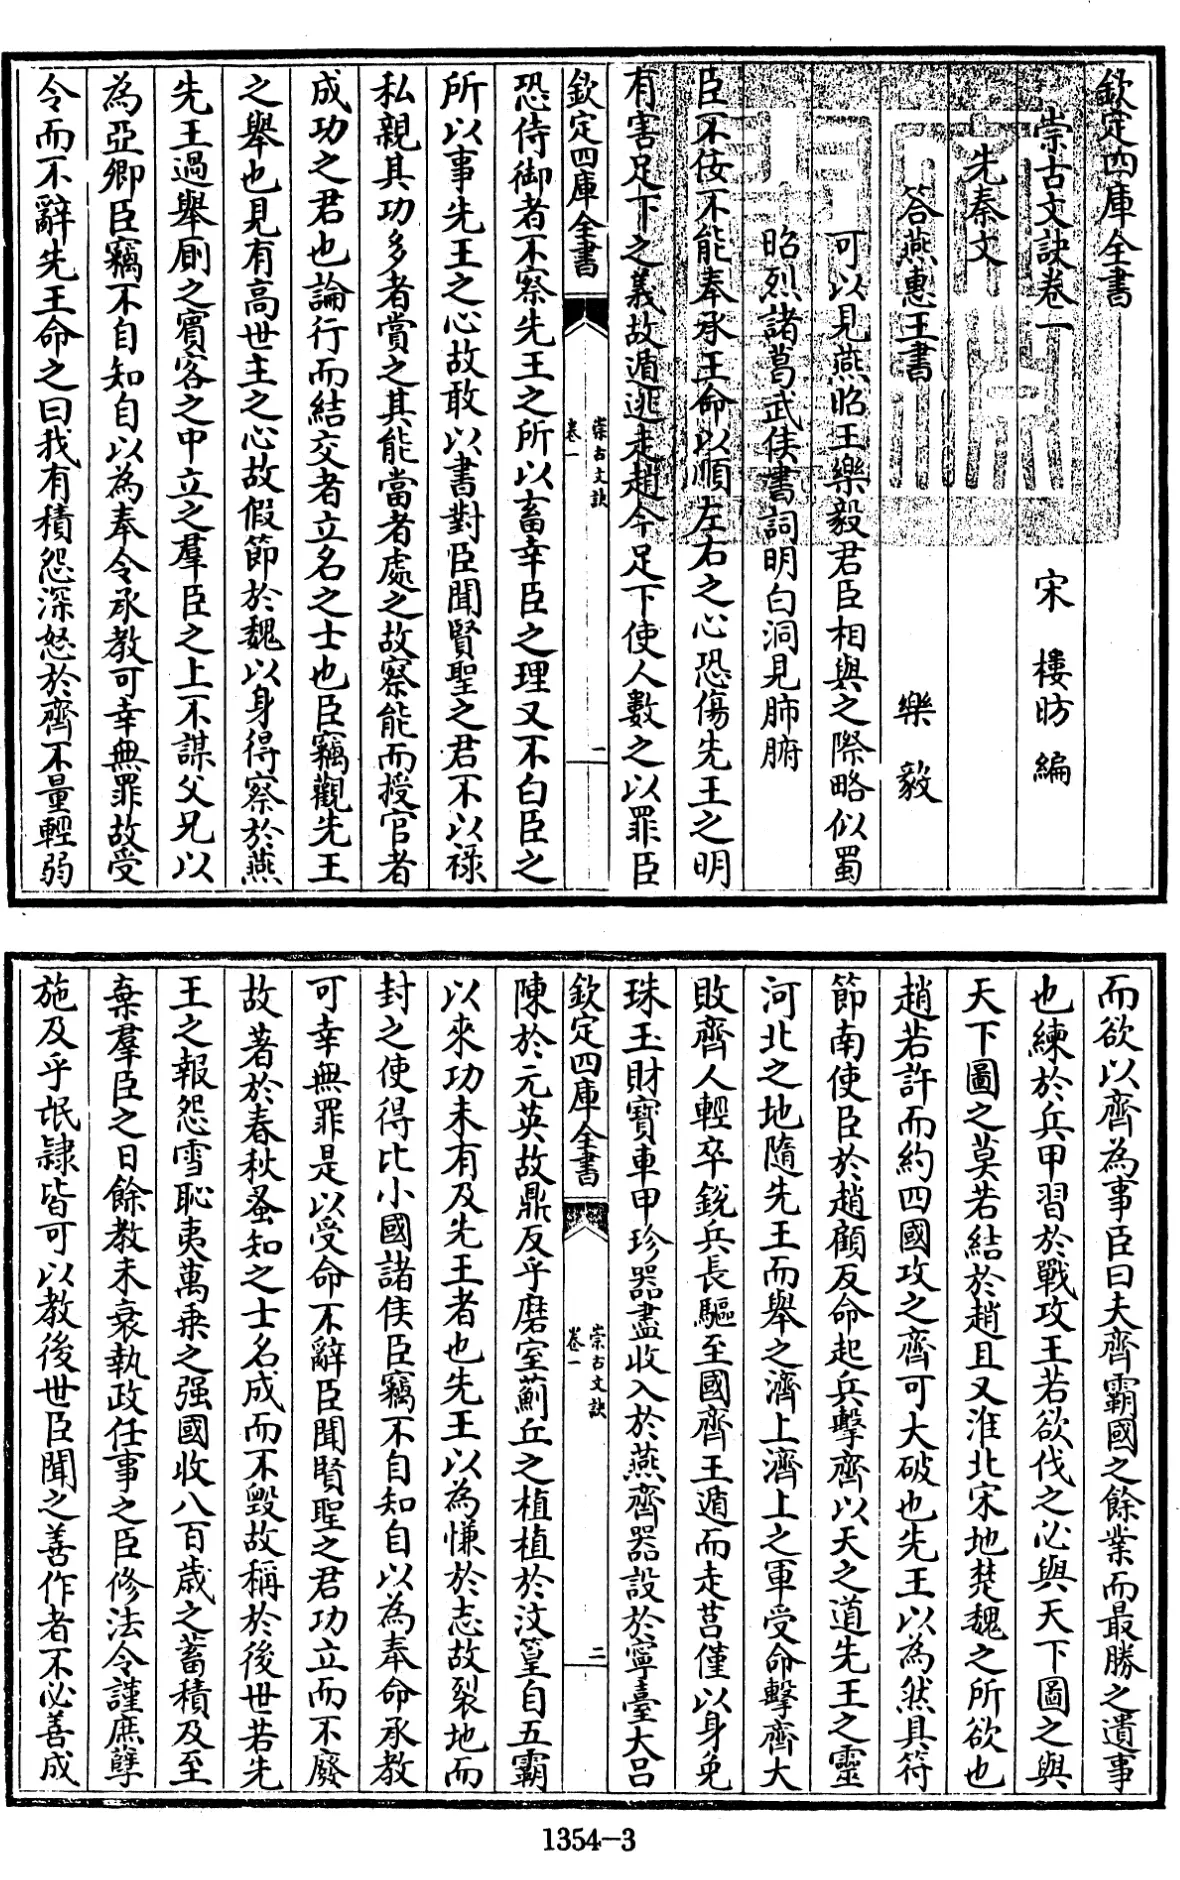 欽定四庫全書
崇古文訣卷一
宋 樓昉 編
先秦文
答燕惠王書 樂毅
可以見燕昭王樂毅君臣相與之際略似蜀
昭烈諸葛武侯書詞明白洞見肺腑
臣不佞不能奉承王命以順左右之心恐傷先王之明
有害足下之義故遁逃走趙今足下使人數之以罪臣
欽定四庫全書
崇古文訣
卷一
一
恐侍御者不察先王之所以畜幸臣之理又不白臣之
所以事先王之心故敢以書對臣聞賢聖之君不以祿
私親其功多者賞之其能當者處之故察能而授官者
成功之君也論行而結交者立名之士也臣竊觀先王
之舉也見有高世主之心故假節於魏以身得察於燕
先王過舉廁之賓客之中立之羣臣之上不謀父兄以
為亞卿臣竊不自知自以為奉令承教可幸無罪故受
令而不辭先王命之曰我有積怨深怒於齊不量輕弱
而欲以齊為事臣曰夫齊霸國之餘業而最勝之遺事
也練於兵甲習於戰攻王若欲伐之必與天下圖之與
天下圖之莫若結於趙且又淮北宋地楚魏之所欲也
趙若許而約四國攻之齊可大破也先王以為然具符
節南使臣於趙顧反命起兵擊齊以天之道先王之靈
河北之地隨先王而舉之濟上濟上之軍受命擊齊大
敗齊人輕卒銳兵長驅至國齊王遁而走莒僅以身免
珠玉財寶車甲珍器盡收入於燕齊器設於寧臺大呂
欽定四庫全書
崇古文訣
卷一
二
陳於元英故鼎反乎磨室薊丘之植植於汶篁自五霸
以來功未有及先王者也先王以為慊於志故裂地而
封之使得比小國諸侯臣竊不自知自以為奉命承教
可幸無罪是以受命不辭臣聞賢聖之君功立而不廢
故著於春秋蚤知之士名成而不毀故稱於後世若先
王之報怨雪恥夷萬乘之强國收八百歲之蓄積及至
棄羣臣之日餘教未衰執政任事之臣修法令謹庶孽
施及乎氓隸皆可以教後世臣聞之善作者不必善成
1354-3